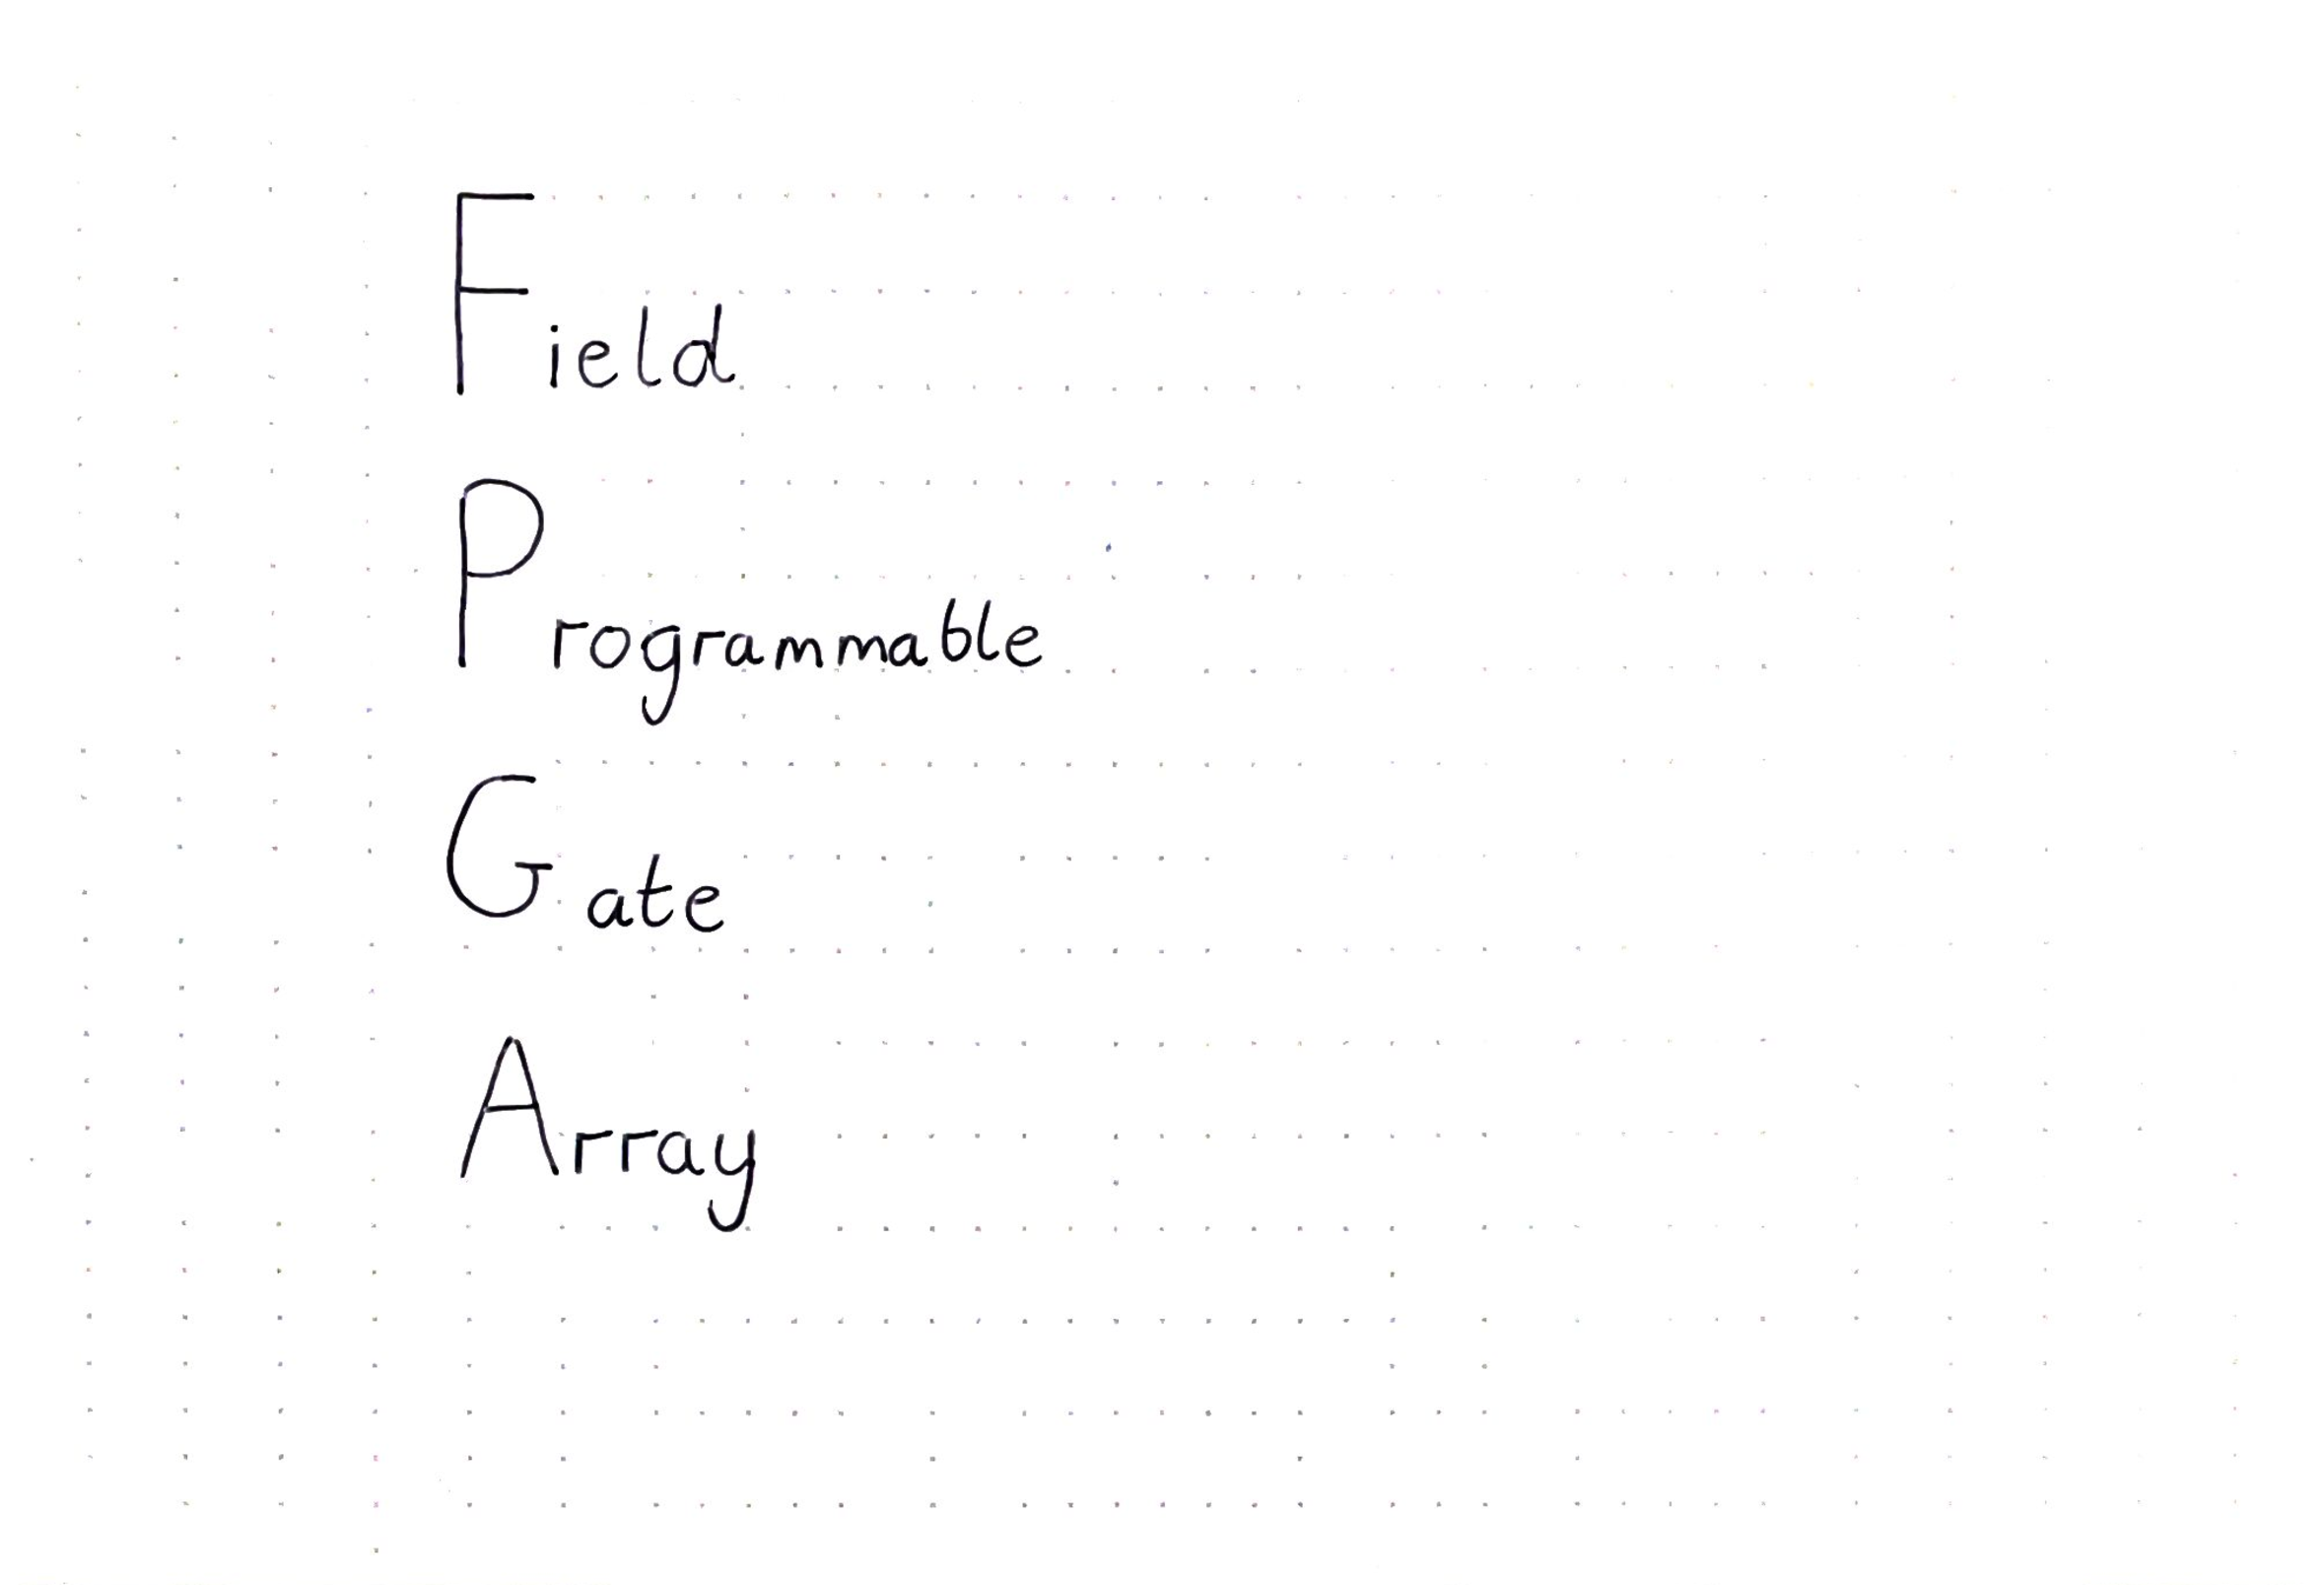 Field
Programmable
Gate
Array